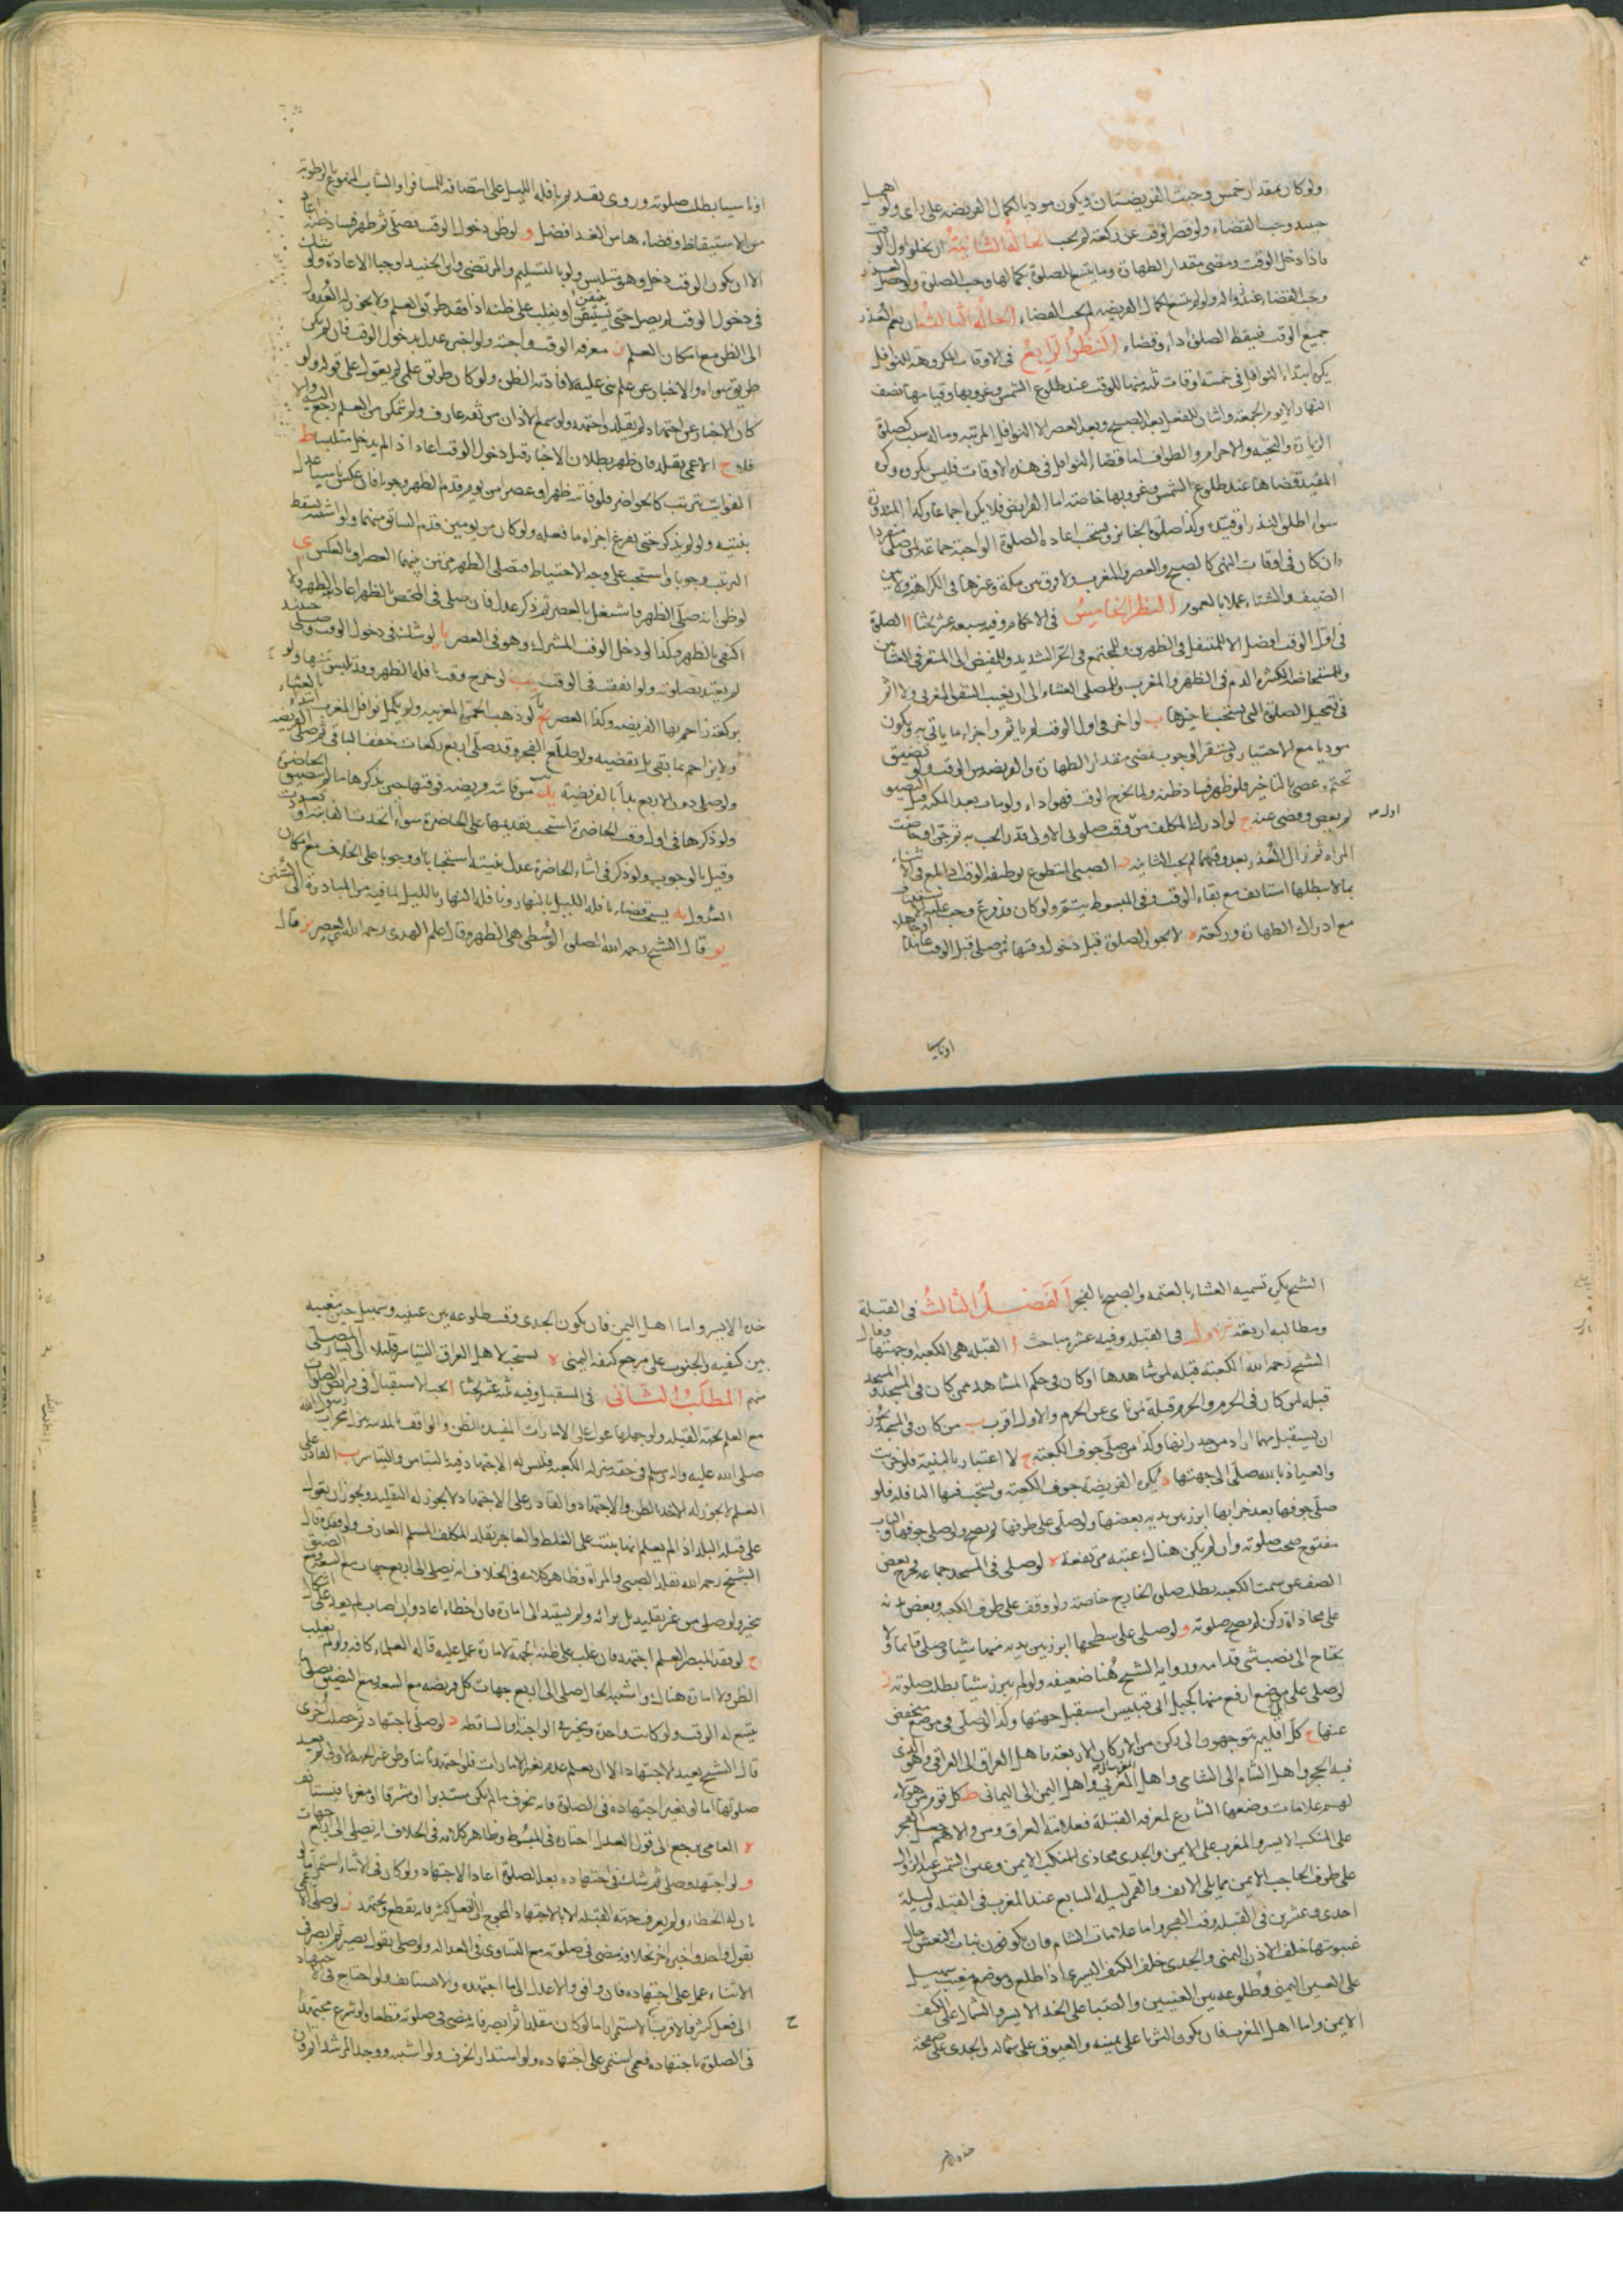 ولو كان بمقدار خمس وجبت الفريضتان ويكون موديا لكمال الفريضه على راى ولو اهمل
حينئذ وجب القضاء ولو قصر الوقت عن ركعته لم يجب الحالة الثانية ان يخلو اول الوقت
فاذا دخل الوقت ومضى مقدار الطهارة وما يتسع الصلوة بكمالها وجب الصلوة ولو حصل العذر
وجب القضاء عند زواله ولو لم يتسع لكمال الفريضه لم يجب القضاء الحالة الثالثة ان يعم العذر
جميع الوقت فيسقط الصلوة اداء وقضاء النظر الرابع فى الاوقات المكروهة للنوافل
يكره ابتداء النوافل فى خمسة اوقات ثلثة منها للوقت عند طلوع الشمس وغروبها وقيامها نصف
النهار الا يوم الجمعة واثنان للفعل بعد الصبح وبعد العصر الا النوافل المرتبه وما له سبب كصلوة
الزيارة والتحية والاحرام والطواف اما قضاء النوافل فى هذه الاوقات فليس بمكروه وكره
المفيد قضاها عند طلوع الشمس وغروبها خاصة اما الفرايض فلا يكره اجماعا وكذا المنذورة
سواء اطلق النذر او قيده وكذا صلوة الجنائز ويستحب اعادة الصلوة الواجبة جماعة لمن صلى منفردا
وان كان فى اوقات النهى كالصبح والعصر والمغرب ولا فرق بين مكة وغيرها فى الكراهية ولا بين
الصيف والشتاء عملا بالعموم النظر الخامس فى الاحكام وفيه سبعة عشر بحثا ا الصلوة
فى اول الوقت افضل الا للمتنفل فى الظهرين وللمجتمع فى الحر الشديد وللمفيض الى المشعر فى العشائين
وللمستحاضة الكثيرة الدم فى الظهر والمغرب وللمصلى العشاء الى ان يغيب الشفق المغربى ولا اثم
فى تعجيل الصلوة التى يستحب تاخيرها ب لو اخر فى اول الوقت لم ياثم واجزاه ما ياتى به ويكون
موديا مع الاختيار ويستقر الوجوب بمضى مقدار الطهارة والفريضه من الوقت ولو تضيق
تحتم وعصى بالتاخير فلو ظهر فساد ظنه ولما يخرج الوقت فهو اداء ولو مات بعد المكنة قبل التضيق
لم يعص وقضى عنه ج لو ادرك المكلف من وقت صلوتى الاولى قدرا يجب به ثم جن او حاضت
اول صح
المراة ثم زال العذر بعد وقتهما لم يجب الثانيه د الصبى المتطوع بوظيفة الوقت اذا بلغ فى الاثناء
بما لا يبطلها استانف مع بقاء الوقت وفى المبسوط يتم ولو كان فرغ وجب عليه
مع ادراك الطهارة وركعة ه لا يجوز الصلوة قبل دخول وقتها فمن صلى قبل الوقت عامدا
او ناسيا
او ناسيا بطلت صلوته وروى تقديم نافلة الليل على انتصافه للمسافر او الشاب الممنوع بالرطوبة
من الاستيقاظ وقضاءها من الغد افضل و لو ظن دخول الوقت فصلى ثم ظهر فساد ظنه اعاد
الا ان يكون الوقت دخل وهو متلبس ولو بالتسليم والمرتضى وابن الجنيد اوجبا الاعادة ولو شك
فى دخول الوقت لم يصل حتى يستيقن او يغلب على ظنه اذا فقد طريق العلم ولا يجوز له العدول
الى الظن مع امكان العلم ز معرفة الوقت واجبة ولو اخبر عدل بدخول الوقت فان لم يكن
طريق سواه والاخبار عن علم بنى عليه لافادته الظن ولو كان طريق علمى لم يعول على قوله ولو
كان الاخبار عن اجتهاد لم يقلد واجتهد ولو سمع الاذان من ثقة عارف ولم يتمكن من العلم رجع اليه والا
فلا ح الاعمى يقلد فان ظهر بطلان الاخبار قبل دخول الوقت اعاد اذا لم يدخل متلبسا ط
الفوايت يترتب كالحواضر فلو فاته ظهر او عصر من يوم قدم الظهر وجوبا فان عكس ناسيا عدل
بنيته ولو لم يذكر حتى يفرغ اجزاه ما فعله ولو كان من يومين قدم السابق منهما ولو اشتبه سقط
الترتيب وجوبا واستحب على وجه الاحتياط فيصلى الظهر مرتين بينهما العصر او بالعكس ى
لو ظن انه صلى الظهر فاشتغل بالعصر ثم ذكر عدل فان صلى فى المختص بالظهر اعاد الظهر والا
اكتفى بالظهر وكذا لو دخل الوقت المشترك وهو فى العصر يا لو شك فى دخول الوقت وصلى حينئذ
لم يعتد بصلوته ولو اتفقت فى الوقت يب لو خرج وقت نافلة الظهر وقد تلبس منها ولو
بركعة زاحم بها الفريضه وكذا العصر يج لو ذهب الحمرة المغربيه ولم يكمل نوافل المغرب ابتدا بالعشاء
ولا يزاحم بما بقى بل يقضيه ولو طلع الفجر وقد صلى اربع ركعات خفف الباقى ثم صلى الفريضه
ولو صلى دون الاربع بدا بالفريضة يد من فاتته فريضه فوقتها حين يذكرها ما لم يتضيق الحاضرة
ولو ذكرها فى اول وقت الحاضرة استحب تقديمها على الحاضرة سواء اتحدت الفايتة او تعددت
وقيل بالوجوب ولو ذكر فى اثناء الحاضرة عدل بنيته استحبابا او وجوبا على الخلاف مع امكان
العدول يه يستحب قضاء نافلة الليل بالنهار ونافلة النهار بالليل لما فيه من المبادرة الى السنن
يو قال الشيخ رحمه الله الصلوة الوسطى هى الظهر وقال علم الهدى رحمه الله هى العصر يز قال
الشيخ يكره تسميه العشاء بالعتمة والصبح بالفجر الفصل الثالث فى القبلة
ومطالبه اربعة الاول فى القبلة وفيه عشر مباحث ا القبلة هى الكعبه او جهتها وقال
الشيخ رحمه الله الكعبة قبلة لمن شاهدها او كان فى حكم المشاهد ممن كان فى المسجد والمسجد
قبلة لمن كان فى الحرم والحرم قبلة من ناى عن الحرم والاول اقرب ب من كان فى المسجد يجوز
ان يستقبل مهما اراد من جدرانها وكذا من صلى جوف الكعبة ج لا اعتبار بالبنية فلو خربت
والعياذ بالله صلى الى جهتها د يكره الفريضة جوف الكعبة ويستحب فيها النافلة فلو
صلى جوفها بعد خرابها ابرز بين يديه بعضها ولو صلى على طرفها لم يصح ولو صلى جوفها والباب
مفتوح صحت صلوته وان لم يكن هناك عتبه مرتفعة ه لو صلى فى المسجد جماعة فخرج بعض
الصف عن سمت الكعبه بطلت صلوة الخارج خاصة ولو وقف على طرف الكعبه وبعض بدنه
على محاذاة ركن لم يصح صلوته و لو صلى على سطحها ابرز بين يديه منها شيئا وصلى قائما ولا
يحتاج الى نصب شئ قدامه ورواية الشيخ هنا ضعيفه ولو لم يبرز شيئا بطلت صلوته ز
لو صلى على موضع ارفع منها كجبل ابى قبيس استقبل جهتها وكذا لو صلى فى موضع منخفض
عنها ح كل اقليم يتوجهون الى ركن من الاركان الاربعة فاهل العراق الى العراقى وهو الذى
فيه الحجر واهل الشام الى الشامى واهل المغرب الى المغربى واهل اليمن الى اليمانى ط كل قوم من هؤلاء
لهم علامات وضعها الشارع لمعرفة القبلة فعلامة العراق ومن والاهم جعل الفجر
على المنكب الايسر والمغرب على الايمن والجدى محاذى المنكب الايمن وعين الشمس عند الزوال
على طرف الحاجب الايمن مما يلى الانف والقمر ليلة السابع عند المغرب فى القبلة وليلة
احدى وعشرين فى القبلة وقت الفجر واما علامات الشام فان يكون بنات النعش حال
غيبوبتها خلف الاذن اليمنى والجدى خلف الكتف اليسرى اذا طلع وموضع مغيب سهيل
على العين اليمنى وطلوعه بين العينين والصبا على الخد الايسر والشمال على الكتف
الايمن واما اهل المغرب فان يكون الثريا على يمينه والعيوق على شماله والجدى على صفحة
خده الايسر
خده الايسر واما اهل اليمن فان يكون الجدى وقت طلوعه بين عينيه وسهيل حين مغيبه
بين كتفيه والجنوب على مرجع كتفه اليمنى ه يستحب لاهل العراق التياسر قليلا الى يسار المصلى
منهم المطلب الثانى فى المستقبل وفيه ثلثة عشر بحثا ا يجب الاستقبال فى فرايض الصلوات
مع العلم بجهة القبلة ولو جهلها عول على الامارات المفيدة للظن والواقف بالمدينة ينزل محراب رسول الله
صلى الله عليه واله وسلم فى حقه منزلة الكعبه فليس له الاجتهاد فيه بالتيامن والتياسر ب القادر على
العلم لا يجوز له الاخذ بالظن والاجتهاد والقادر على الاجتهاد لا يجوز له التقليد ويجوز ان يعول
على قبلة البلد اذا لم يعلم انها بنيت على الغلط والعاجز يقلد المكلف المسلم العارف ولو فقده قال
الشيخ رحمه الله يقلد الصبى والمراة وظاهر كلامه فى الخلاف انه يصلى الى اربع جهات مع السعة ومع الضيق
يتخير ولو صلى من غير تقليد بل برائه ولم يستند الى امارة فان اخطاء اعاد وان اصاب لم يعد على اشكال
ج لو فقد المبصر العلم اجتهد فان غلب على ظنه الجهة لامارة عمل عليه قاله العلماء كافة ولو لم يغلب
الظن ولا امارة هناك واشتبه الحال صلى الى اربع جهات كل فريضه مع السعة ومع التضيق يصلى ما
يتسع له الوقت ولو كانت واحدة ويتخير فى الواجبة والساقطة د لو صلى باجتهاد ثم حضرت اخرى
قال الشيخ يعيد الاجتهاد الا ان يعلم عدم تغير الامارات فلو اجتهد ثانيا وظن غير الجهة الاولى لم يعد
صلوتها اما لو تغير اجتهاده فى الصلوة فانه ينحرف ما لم يكن مستدبرا او مشرقا او مغربا فيستانف
ه العامى يرجع الى قول العدل اختاره فى المبسوط وظاهر كلامه فى الخلاف انه يصلى الى اربع جهات
و لو اجتهد وصلى ثم شك فى اجتهاده بعد الصلوة اعاد الاجتهاد ولو كان فى الاثناء استمر
بان له الخطاء ولم يعرف جهة القبلة الا بالاجتهاد المحوج الى الفعل الكثير فانه يقطع ويجتهد ز لو صلى الاعمى
بقول واحد واخبر اخر بخلافه مضى فى صلوته مع التساوى فى العدالة ولو صلى بقول بصير ثم ابصر فى
الاثناء عمل على اجتهاده فان وافق والا عدل الى ما اجتهده والا استانف ولو احتاج فى الاجتهاد
الى فعل كثير فالاقرب الاستمرار اما لو كان مقلدا ثم ابصر فانه يمضى فى صلوته قطعا ولو شرع مجتهدا
ح
فى الصلوة باجتهاده فعمى استمر على اجتهاده ولو استدار انحرف ولو اشتبه ووجد المرشد